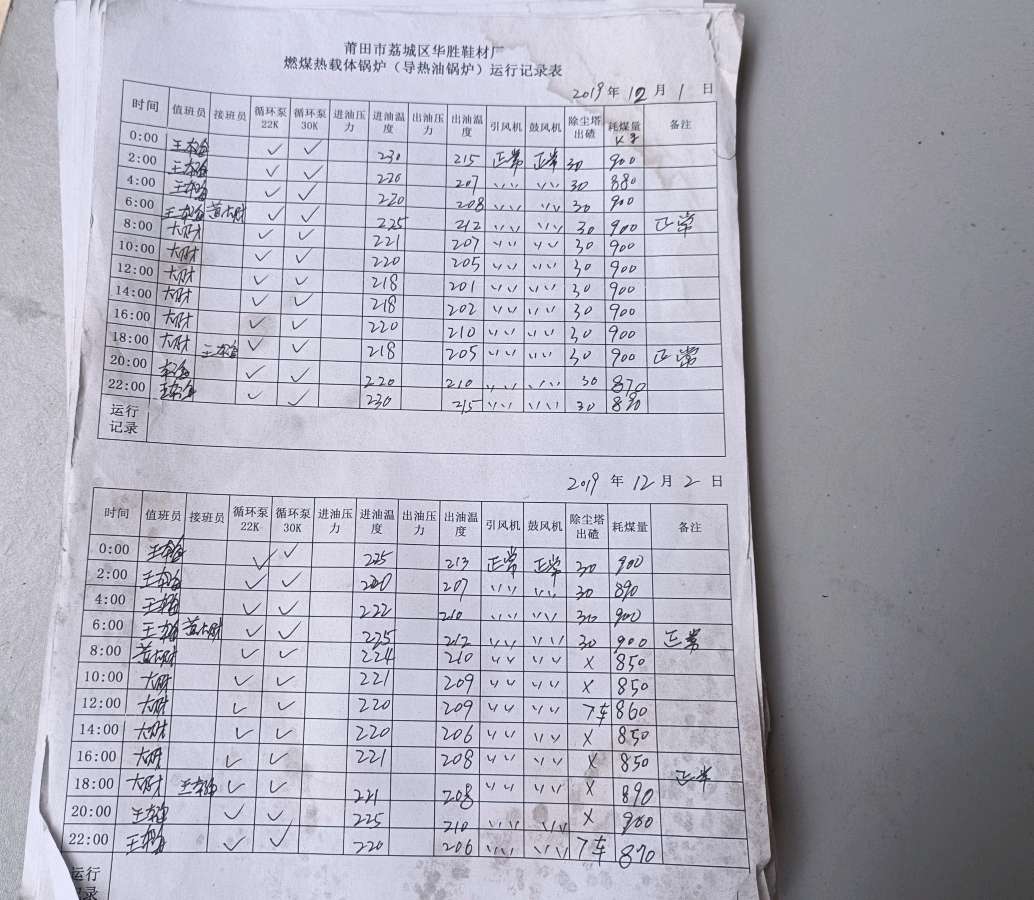 莆田市荔城区华胜鞋材厂
燃煤热载体锅炉（导热油锅炉）运行记录表
2019 年 12 月 1 日
时间 值班员 接班员 循环泵22K 循环泵30K 进油压力 进油温度 出油压力 出油温度 引风机 鼓风机 除尘塔出碴 耗煤量 kg 备注
0:00 ✓ ✓ 230 215 正常 正常 30 900
2:00 ✓ ✓ 220 207 \/ \/ \/ \/ 30 880
4:00 ✓ ✓ 220 208 30 900
6:00 ✓ ✓ 225 212 30 900 正常
8:00 大财 ✓ ✓ 221 207 30 900
10:00 大财 ✓ ✓ 220 205 30 900
12:00 大财 ✓ ✓ 218 201 30 900
14:00 大财 ✓ ✓ 218 202 30 900
16:00 大财 ✓ ✓ 220 210 30 900
18:00 大财 ✓ ✓ 218 205 30 900 正常
20:00 ✓ ✓ 220 210 30 870
22:00 ✓ ✓ 230 215 30 890
运行记录
2019 年 12 月 2 日
时间 值班员 接班员 循环泵22K 循环泵30K 进油压力 进油温度 出油压力 出油温度 引风机 鼓风机 除尘塔出碴 耗煤量 备注
0:00 ✓ ✓ 225 213 正常 正常 30 900
2:00 ✓ ✓ 220 207 30 890
4:00 ✓ ✓ 222 210 30 900
6:00 黄大财 ✓ ✓ 225 212 30 900 正常
8:00 黄大财 ✓ ✓ 224 210 × 850
10:00 大财 ✓ ✓ 221 209 × 850
12:00 大财 ✓ ✓ 220 209 7车 860
14:00 大财 ✓ ✓ 220 206 × 850
16:00 大财 ✓ ✓ 221 208 × 850
18:00 大财 ✓ ✓ 221 208 × 890 正常
20:00 ✓ ✓ 225 210 × 900
22:00 ✓ ✓ 220 206 7车 870
运行记录